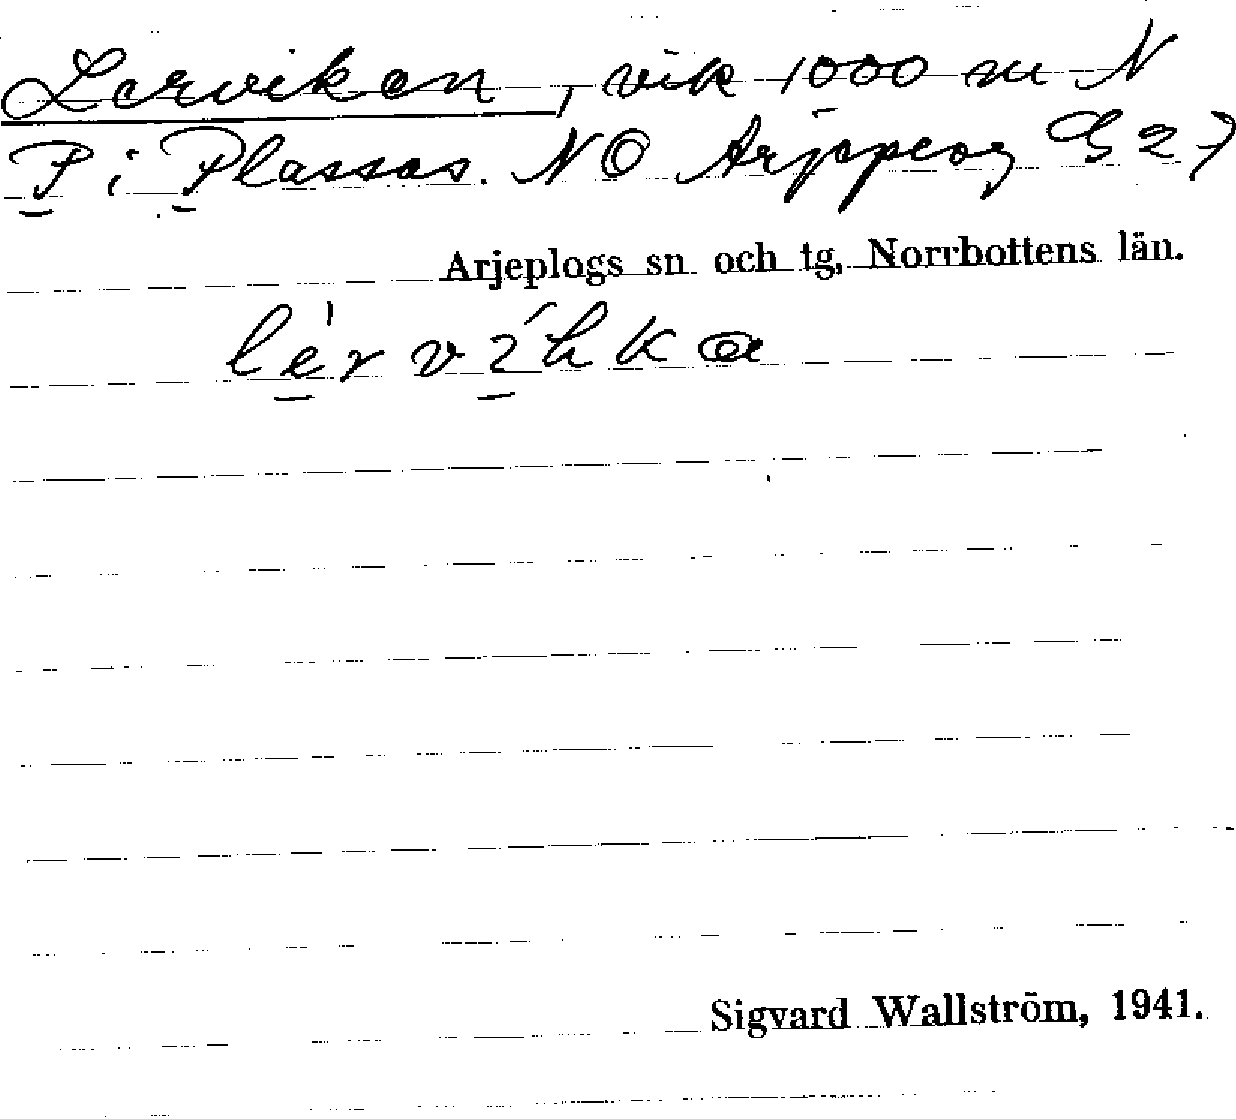 Lerviken, vik 1000 m N
P i Plassas. NO Arjeplog G 27
Arjeplogs sn och tg, Norrbottens län.
Sigvard Wallström, 1941.